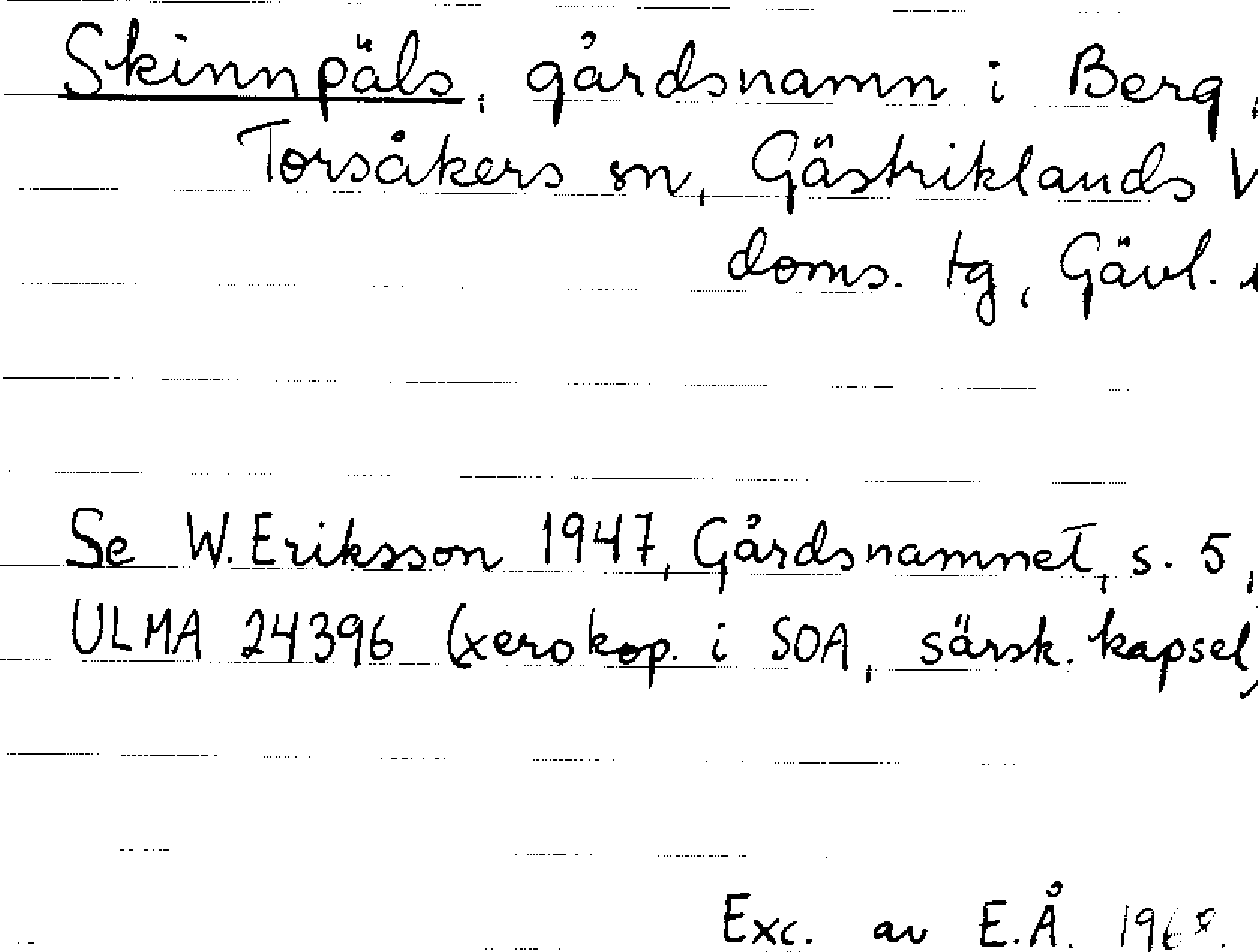 Skinnpäls, gårdsnamn i Berg,
Torsåkers sn, Gästriklands V
doms. tg, Gävl.
Se W. Eriksson 1947, Gårdsnamnet, s. 5,
ULMA 24396 (xerokop. i SOA, särsk. kapsel)
Exc. av E.Å.